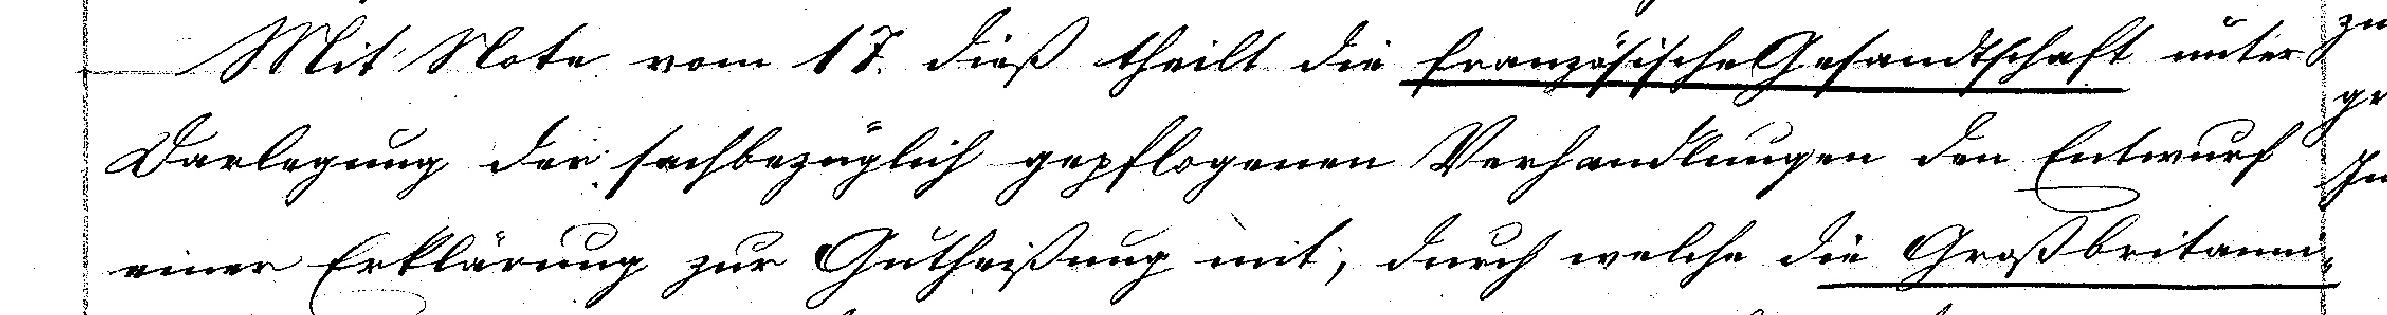 Mit Note vom 17. dieß theilt die französische Gesandtschaft unter
Darlegung der sachbezüglich gepflogenen Verhandlungen den Entwurf
einer Erklärung zur Gutheißung mit, durch welche die Großbritanni-